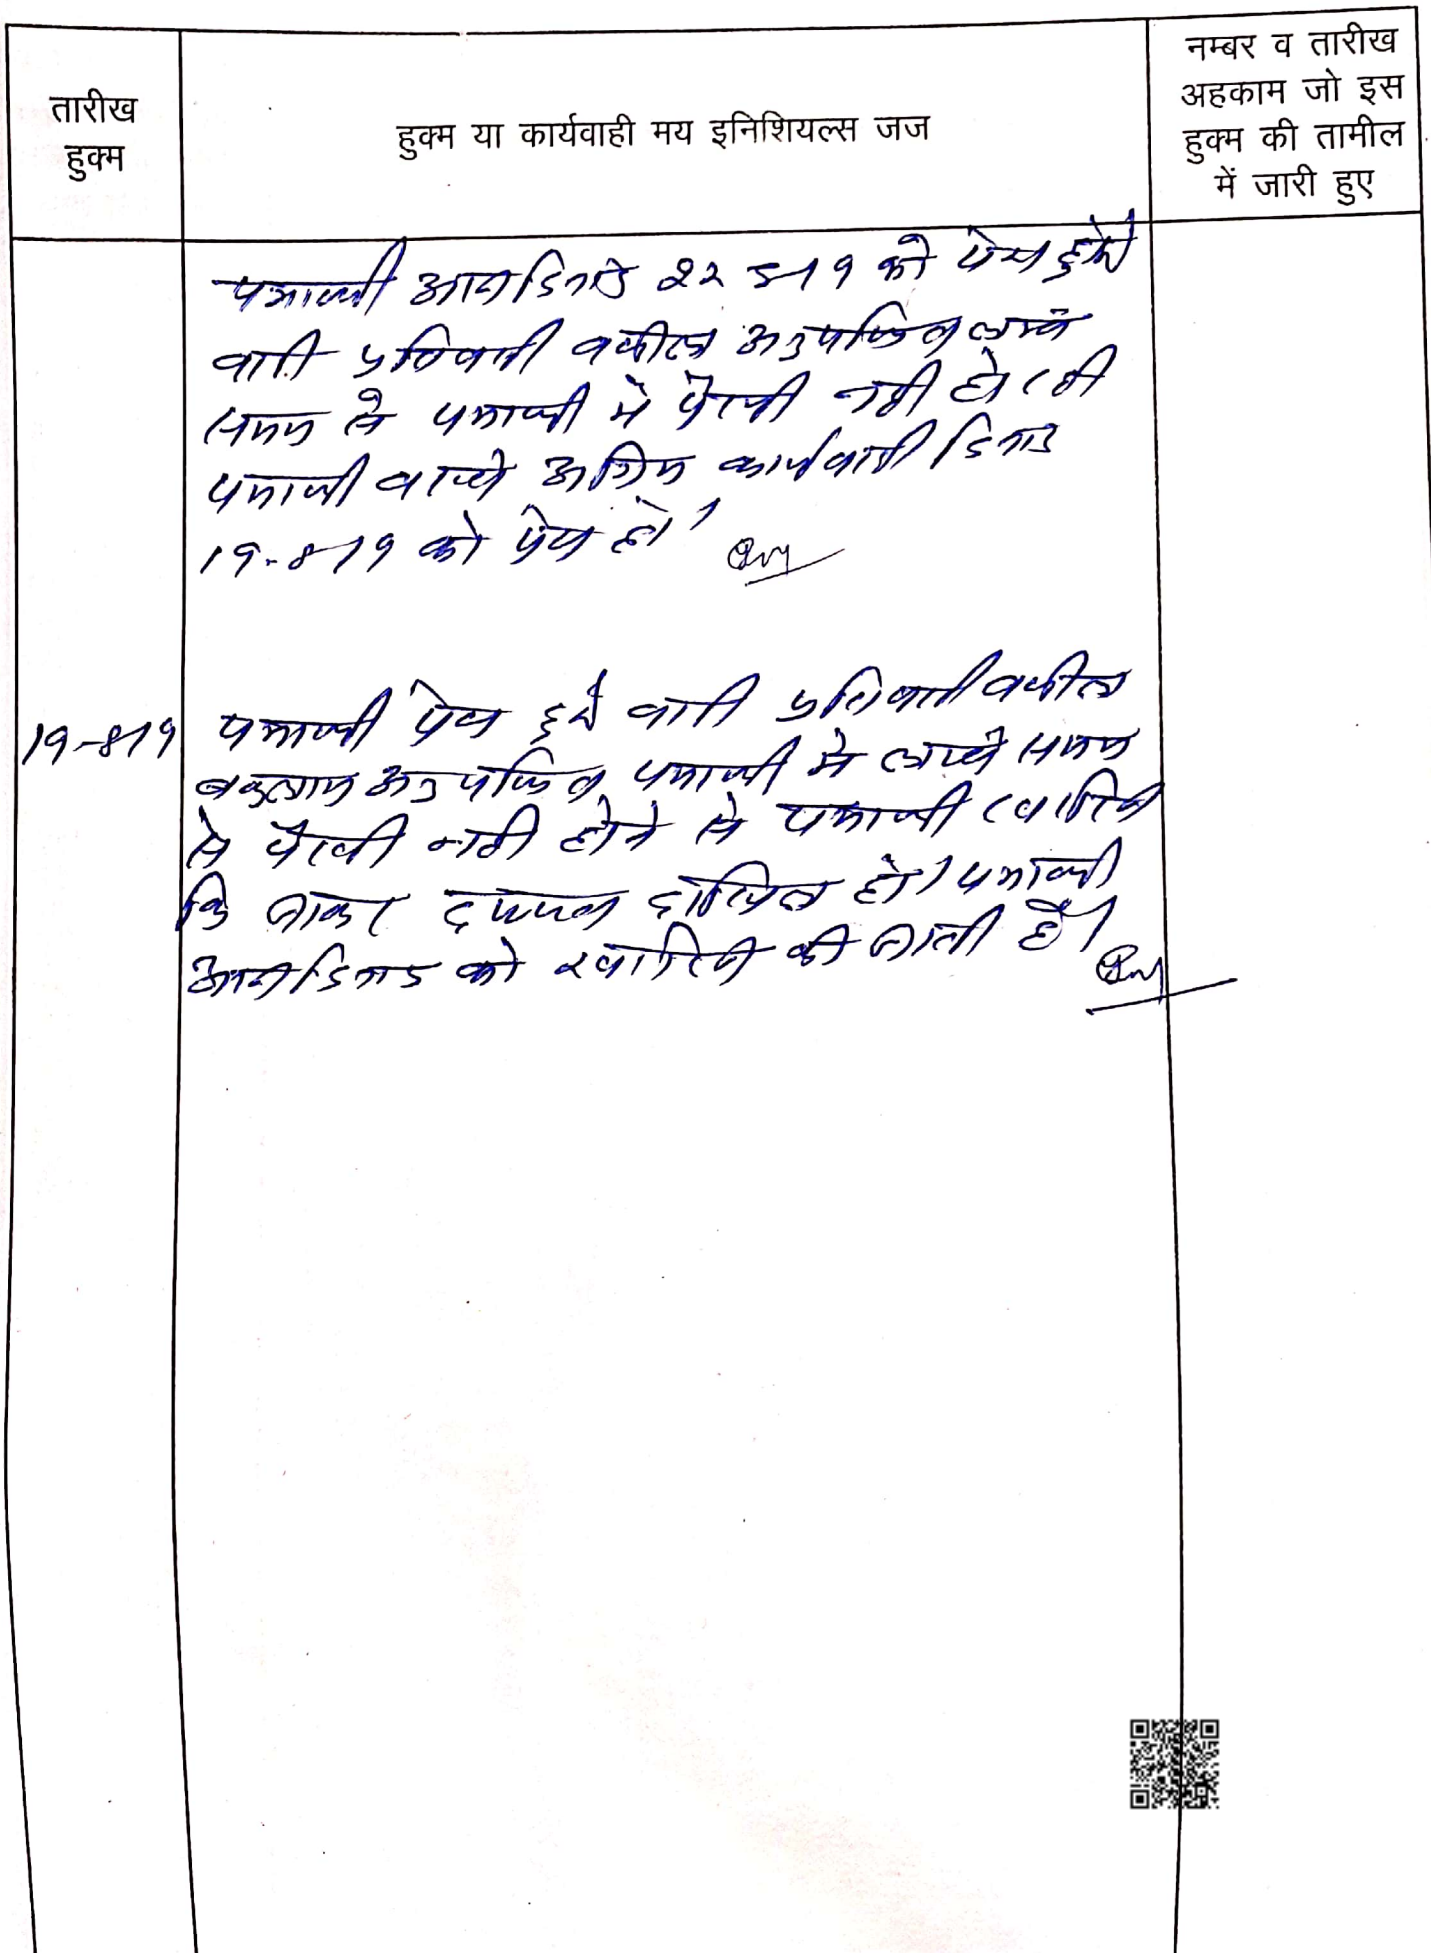 तारीख
हुक्म
हुक्म या कार्यवाही मय इनिशियल्स जज
नम्बर व तारीख
अहकाम जो इस
हुक्म की तामील
में जारी हुए
पत्रावली आज दिनांक 22-5-19 को पेश हुई
वादी प्रतिवादी वकील अनुपस्थित लम्बे
समय से पत्रावली में पैरवी नही हो रही
पत्रावली वास्ते अग्रिम कार्यवाही दिनांक
19-8-19 को पेश हो।
19-8-19 पत्रावली पेश हुई वादी प्रतिवादी वकील
अनुपस्थित पत्रावली में लम्बे समय
से पैरवी नही होने से पत्रावली खारिज
कि जाकर दफ्तर दाखिल हो। पत्रावली
आज दिनांक को खारिज की जाती है।